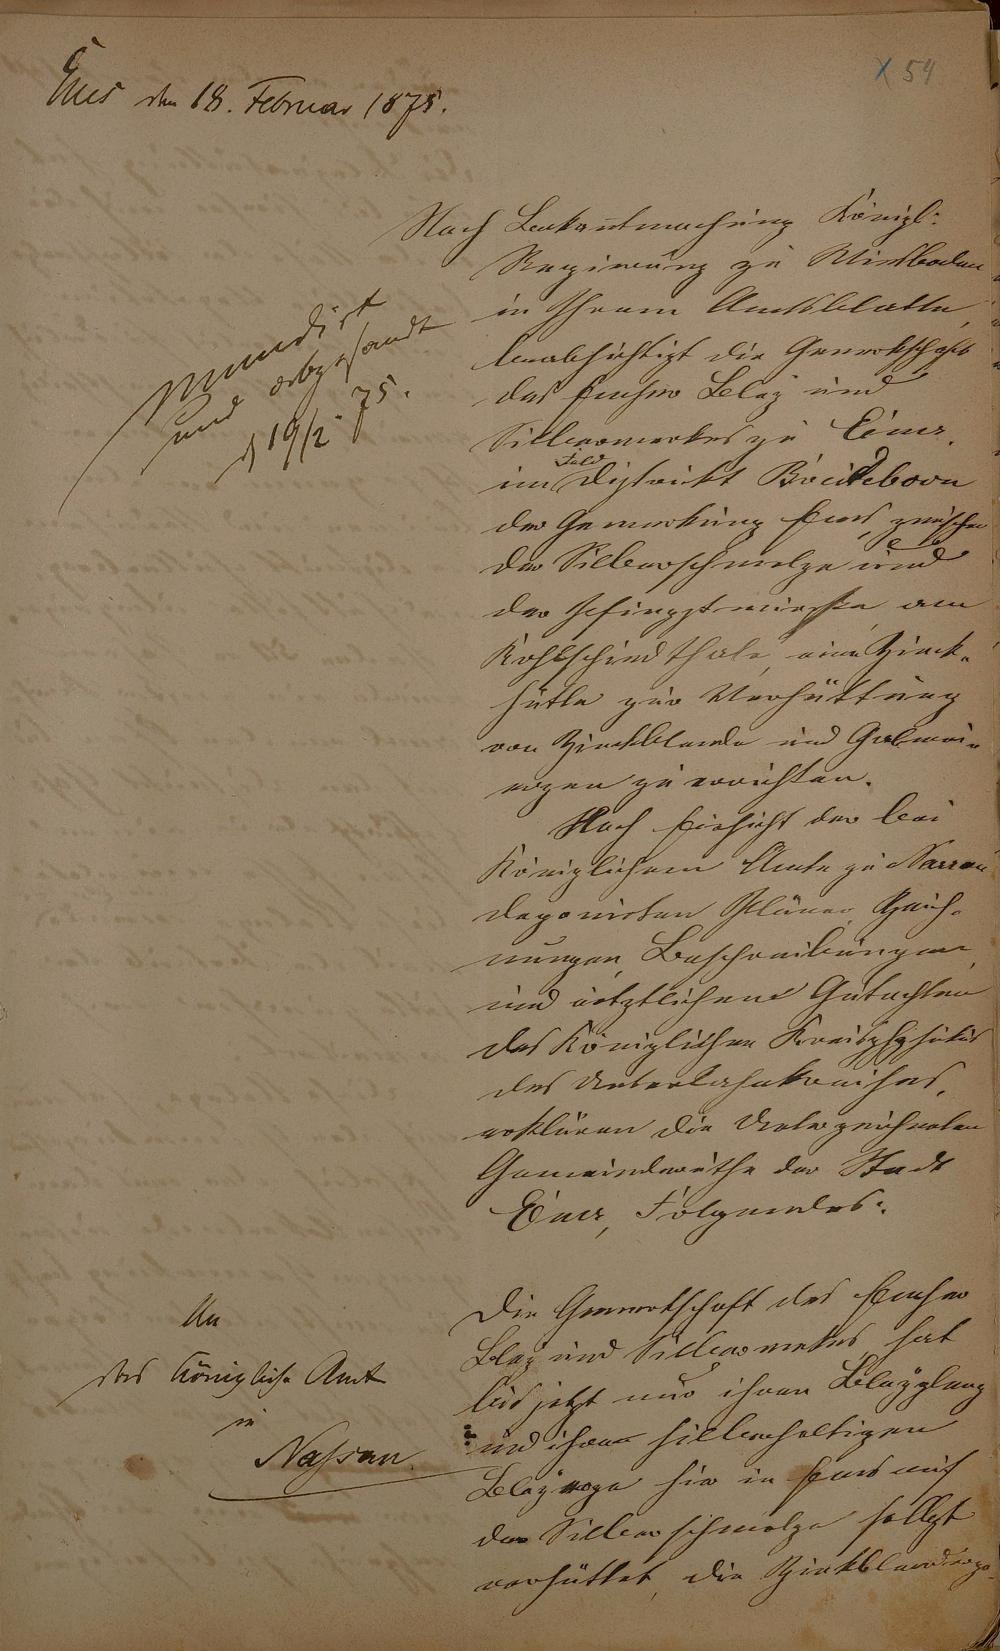 Ems den 18. Februar 1875.
X 54
Nach Bekanntmachung Königl:
Regierung zu Wiesbaden
in Ihrem Amtsblatte,
beabsichtigt die Gewerkschaft
des Emser Bley und
Silberwerkes zu Ems,
im Feld Distrikt Breiteborn
der Gemarkung Ems, zwischen
der Silberschmelze und
der Pfingstwiese am
Kohlschiedthale, eine Zink-
hütte zur Verhüttung
von Zinkblende und Galmei-
erzen zu errichten.
Nach Einsicht der bei
Königlichem Amte zu Nassau
deponirten Pläne, Zeich-
nungen, Beschreibungen,
und ärtztlichem Gutachten
des Königlichen Kreisphysikus
des Unterlahnkreises,
erklären die Unterzeichneten
Gemeinderäthe der Stadt
Ems, Folgendes:
mundirt
und abgesandt
d 19/2 75.
Die Gewerkschaft des Emser
Bley und Silberwerkes, hat
bis jetzt nur ihren Bleyglanz
und ihre silberhaltigen
Bleyerze hier in Ems auf
der Silberschmelze selbst
verhüttet, die Zinkblenderze
An
das Königliche Amt
in
Nassau.